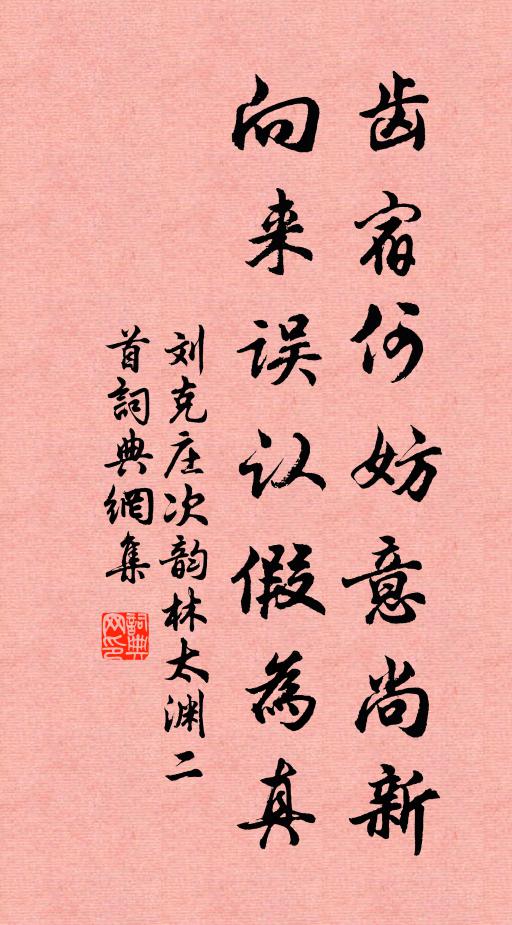 齿宿何妨意尚新
向来误认假為真
刘克庄次韵林太渊二
首詞典網集
詞典網印